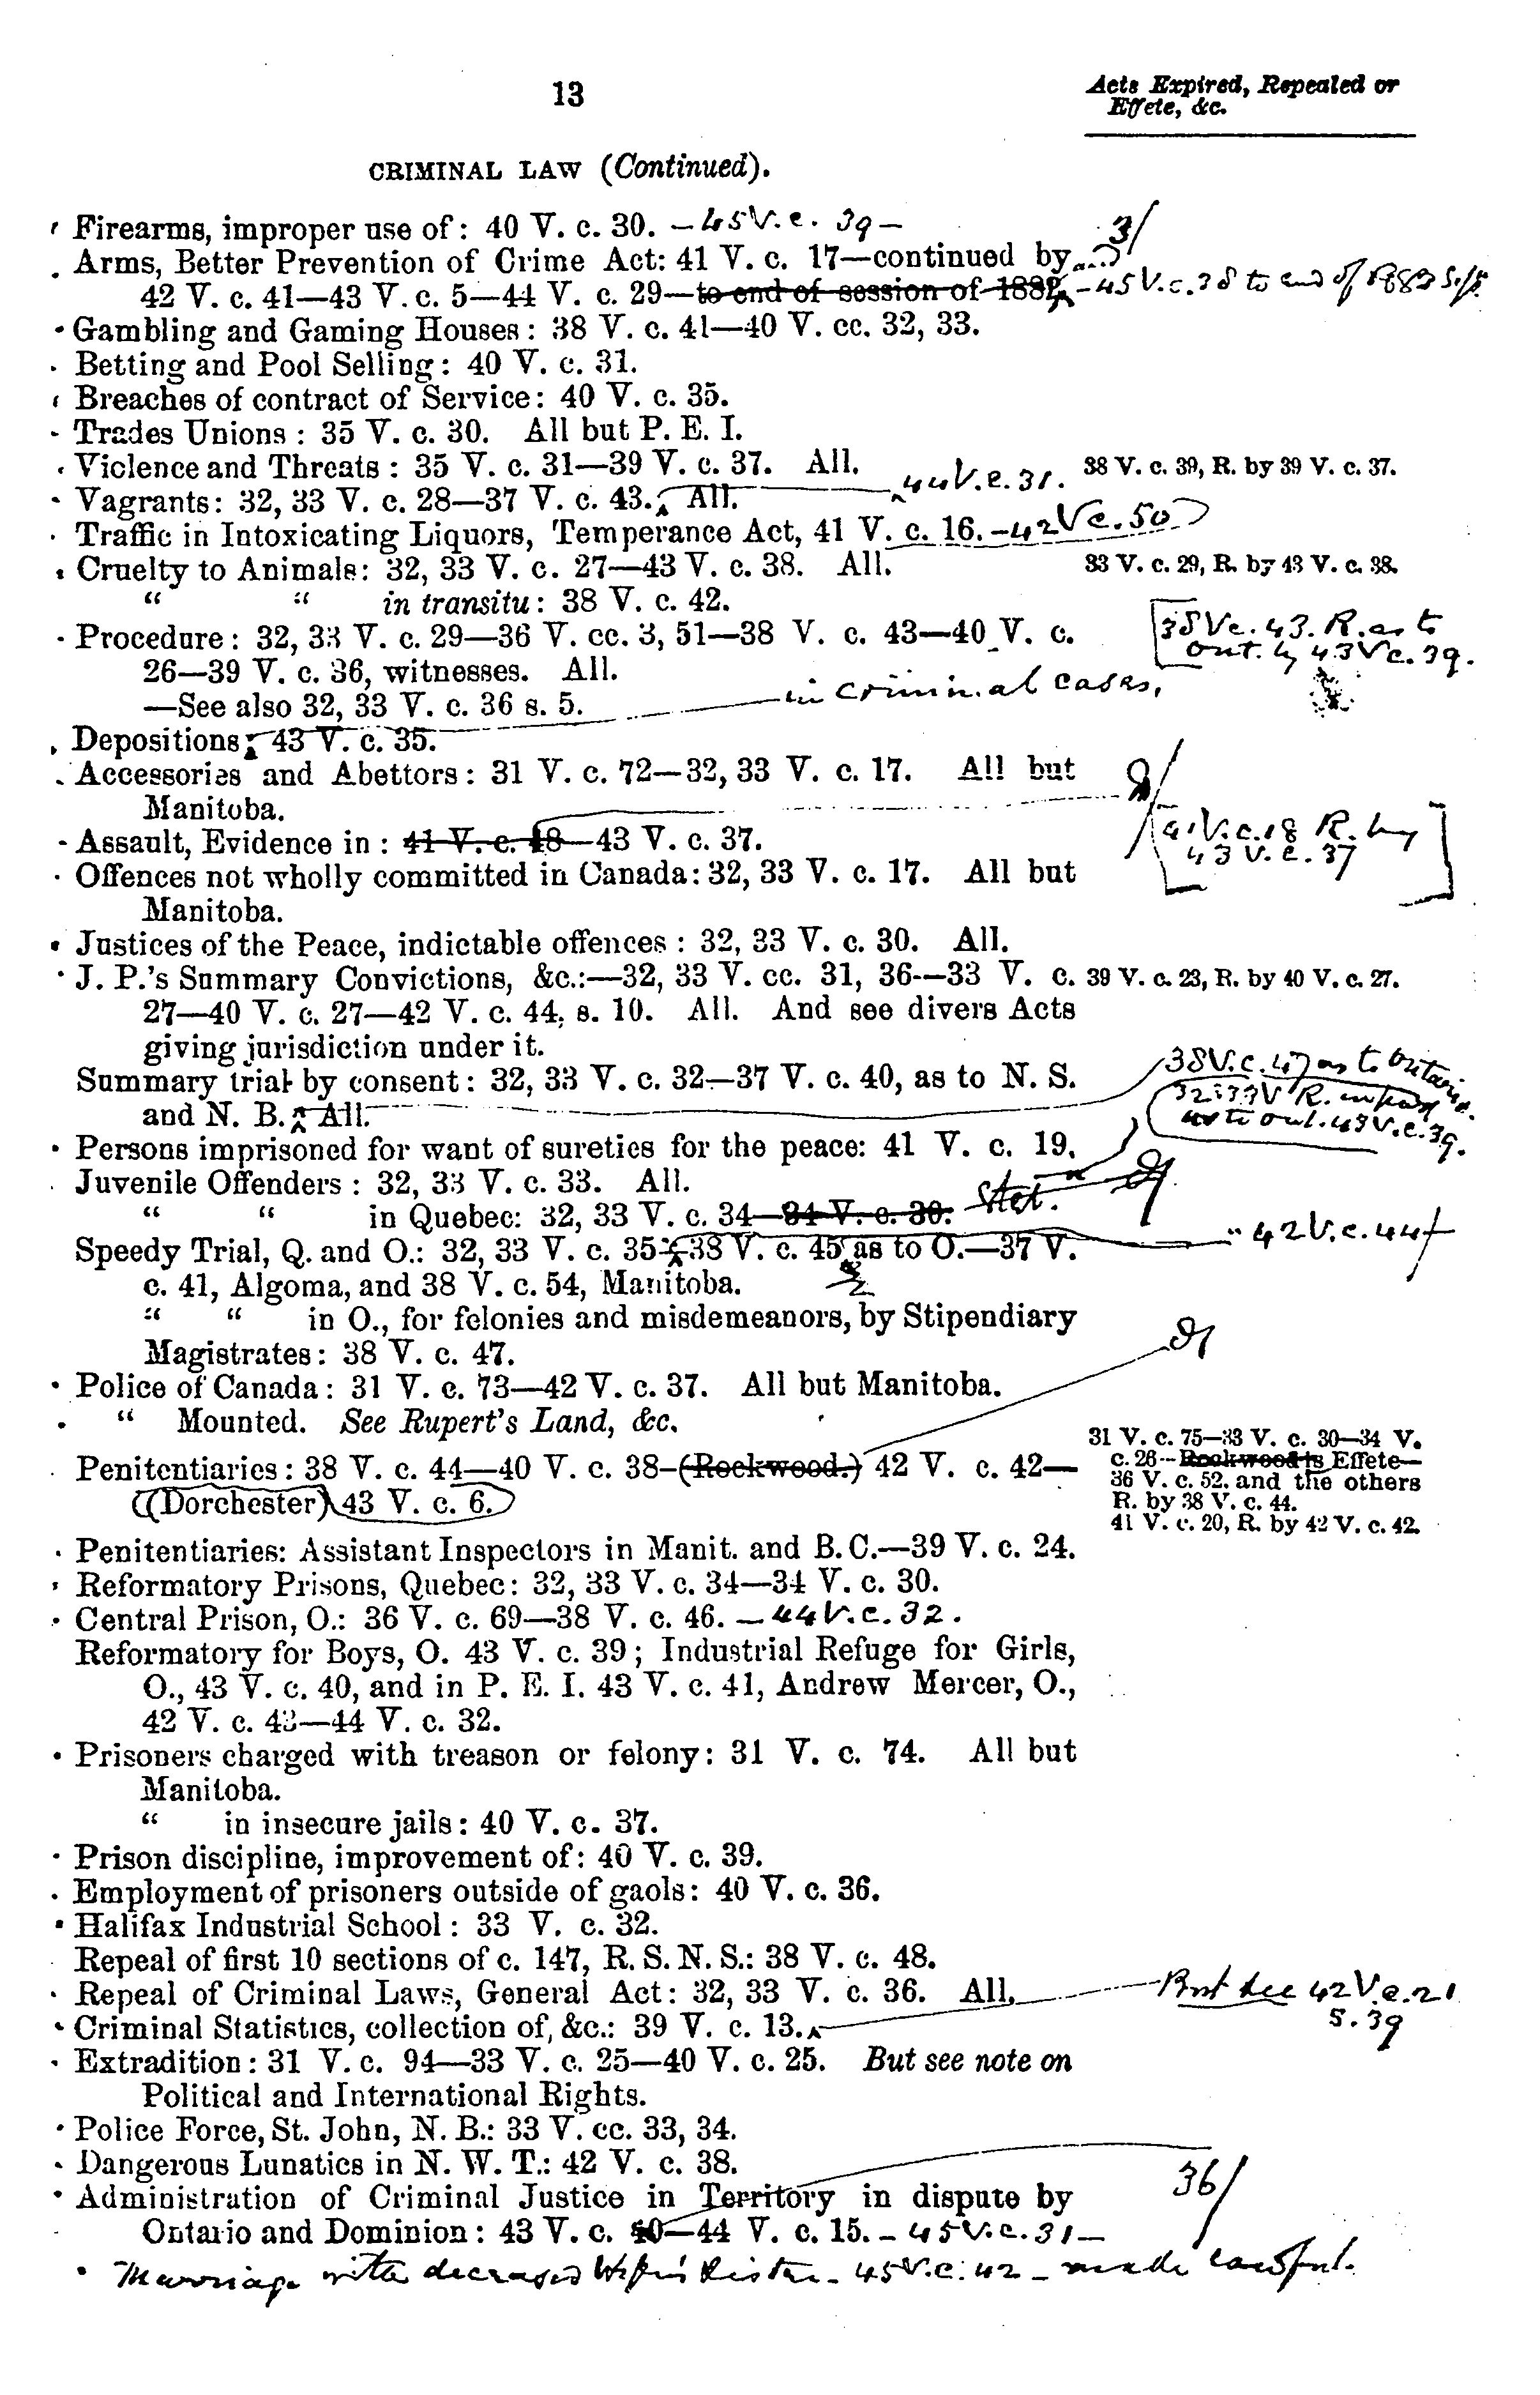 13
Acts Expired, Repealed or
Effete, &c.
CRIMINAL LAW (Continued).
Firearms, improper use of: 40 V. c. 30. – 45 V. c. 39 –
3/
Arms, Better Prevention of Crime Act: 41 V. c. 17—continued by
42 V. c. 41—43 V. c. 5—44 V. c. 29—to end of session of 1882, – 45 V. c. 38 to end of 1883
Gambling and Gaming Houses: 38 V. c. 41—40 V. cc. 32, 33.
Betting and Pool Selling: 40 V. c. 31.
Breaches of contract of Service: 40 V. c. 35.
Trades Unions: 35 V. c. 30. All but P. E. I.
Violence and Threats: 35 V. c. 31—39 V. c. 37. All.
38 V. c. 39, R. by 39 V. c. 37.
Vagrants: 32, 33 V. c. 28—37 V. c. 43. All.
44 V. c. 31.
Traffic in Intoxicating Liquors, Temperance Act, 41 V. c. 16. – 42 V c. 50
Cruelty to Animals: 32, 33 V. c. 27—43 V. c. 38. All.
33 V. c. 29, R. by 43 V. c. 38.
“ “ in transitu: 38 V. c. 42.
Procedure: 32, 33 V. c. 29—36 V. cc. 3, 51—38 V. c. 43—40 V. c.
26—39 V. c. 36, witnesses. All.
38 V c. 43. R. as to
Ont. by 43 V c. 39.
—See also 32, 33 V. c. 36 s. 5.
in criminal cases,
Depositions; 43 V. c. 35.
Accessories and Abettors: 31 V. c. 72—32, 33 V. c. 17. All but
Manitoba.
Assault, Evidence in: 41 V. c. 18—43 V. c. 37.
41 V. c. 18 R. by
43 V. c. 37
Offences not wholly committed in Canada: 32, 33 V. c. 17. All but
Manitoba.
Justices of the Peace, indictable offences: 32, 33 V. c. 30. All.
J. P.'s Summary Convictions, &c.:—32, 33 V. cc. 31, 36—33 V. c.
39 V. c. 23, R. by 40 V. c. 27.
27—40 V. c. 27—42 V. c. 44, s. 10. All. And see divers Acts
giving jurisdiction under it.
Summary trial by consent: 32, 33 V. c. 32—37 V. c. 40, as to N. S.
and N. B. All.
38 V. c. 47 as to Ontario.
32 & 33 V R. in part
as to Ont. 43 V. c. 39.
Persons imprisoned for want of sureties for the peace: 41 V. c. 19.
Juvenile Offenders: 32, 33 V. c. 33. All.
“ “ in Quebec: 32, 33 V. c. 34—34 V. c. 30. Stet.
Speedy Trial, Q. and O.: 32, 33 V. c. 35—38 V. c. 45 as to O.—37 V.
42 V. c. 44
c. 41, Algoma, and 38 V. c. 54, Manitoba.
“ “ in O., for felonies and misdemeanors, by Stipendiary
Magistrates: 38 V. c. 47.
Police of Canada: 31 V. c. 73—42 V. c. 37. All but Manitoba.
“ Mounted. See Rupert's Land, &c.
Penitentiaries: 38 V. c. 44—40 V. c. 38—(Rockwood.) 42 V. c. 42—
(Dorchester) 43 V. c. 6.
31 V. c. 75—33 V. c. 30—34 V.
c. 26—Rockwood is Effete—
36 V. c. 52, and the others
R. by 38 V. c. 44.
41 V. c. 20, R. by 42 V. c. 42.
Penitentiaries: Assistant Inspectors in Manit. and B. C.—39 V. c. 24.
Reformatory Prisons, Quebec: 32, 33 V. c. 34—34 V. c. 30.
Central Prison, O.: 36 V. c. 69—38 V. c. 46. – 44 V. c. 32.
Reformatory for Boys, O. 43 V. c. 39; Industrial Refuge for Girls,
O., 43 V. c. 40, and in P. E. I. 43 V. c. 41, Andrew Mercer, O.,
42 V. c. 43—44 V. c. 32.
Prisoners charged with treason or felony: 31 V. c. 74. All but
Manitoba.
“ in insecure jails: 40 V. c. 37.
Prison discipline, improvement of: 40 V. c. 39.
Employment of prisoners outside of gaols: 40 V. c. 36.
Halifax Industrial School: 33 V. c. 32.
Repeal of first 10 sections of c. 147, R. S. N. S.: 38 V. c. 48.
Repeal of Criminal Laws, General Act: 32, 33 V. c. 36. All.
But see 42 V. c. 21
s. 39
Criminal Statistics, collection of, &c.: 39 V. c. 13.
Extradition: 31 V. c. 94—33 V. c. 25—40 V. c. 25. But see note on
Political and International Rights.
Police Force, St. John, N. B.: 33 V. cc. 33, 34.
Dangerous Lunatics in N. W. T.: 42 V. c. 38.
36/
Administration of Criminal Justice in Territory in dispute by
Ontario and Dominion: 43 V. c. 40—44 V. c. 15. – 45 V. c. 31 –
Marriage with deceased Wife's Sister – 45 V. c. 42 – made lawful.